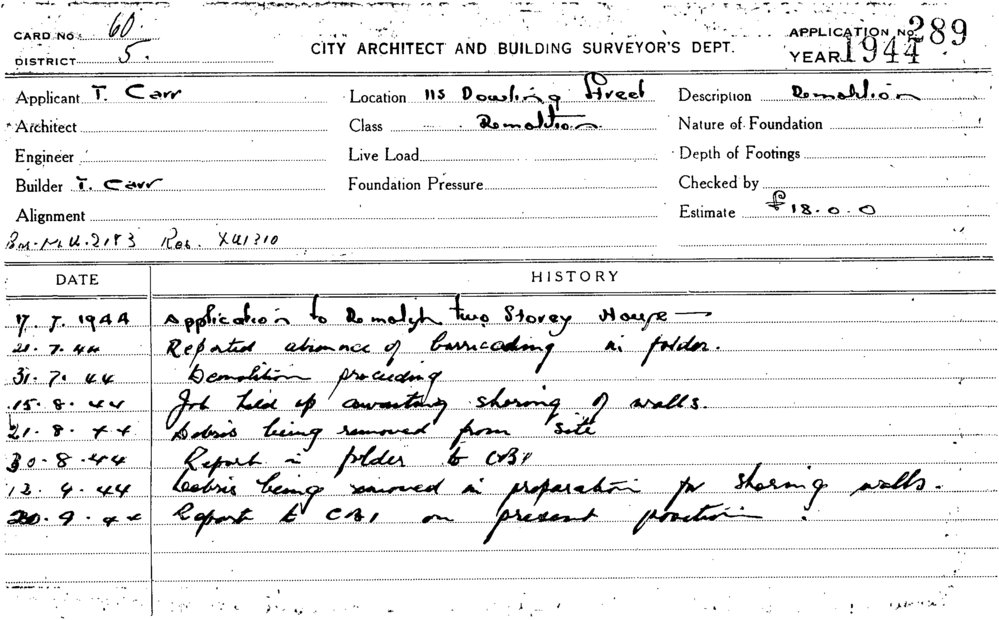 CARD No. 60.
DISTRICT 5.
CITY ARCHITECT AND BUILDING SURVEYOR'S DEPT.
APPLICATION No. 289
YEAR 1944
Applicant T. Carr
Location 115 Dowling Street
Description Demolition
Architect
Class Demolition
Nature of Foundation
Engineer
Live Load
Depth of Footings
Builder T. Carr
Foundation Pressure
Checked by
Alignment
Estimate £18.0.0
DATE
HISTORY
17.7.1944 Application to Demolish two Storey House —
21.7.44 Reported absence of barricading in folder.
31.7.44 Demolition proceeding
15.8.44 Job held up awaiting shoring of walls.
21.8.44 Debris being removed from site
30.8.44 Report in folder to CBI
12.9.44 Debris being removed in preparation for shoring walls.
20.9.44 Report to CBI on present position.